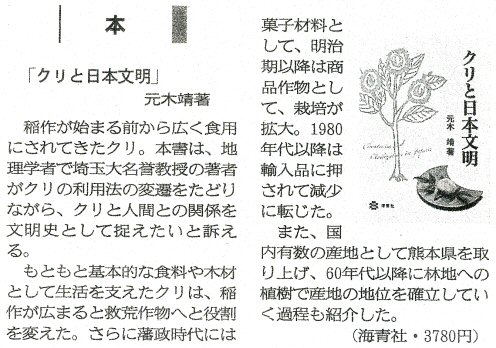 本
「クリと日本文明」
元木靖著
稲作が始まる前から広く食用
にされてきたクリ。本書は、地
理学者で埼玉大名誉教授の著者
がクリの利用法の変遷をたどり
ながら、クリと人間との関係を
文明史として捉えたいと訴え
る。
もともと基本的な食料や木材
として生活を支えたクリは、稲
作が広まると救荒作物へと役割
を変えた。さらに藩政時代には
菓子材料と
して、明治
期以降は商
品作物とし
て、栽培が
拡大。1980
年代以降は
輸入品に押
されて減少
に転じた。
また、国
内有数の産地として熊本県を取
り上げ、60年代以降に林地への
植樹で産地の地位を確立してい
く過程も紹介した。
（海青社・3780円）
クリと日本文明
元木 靖 著
海青社